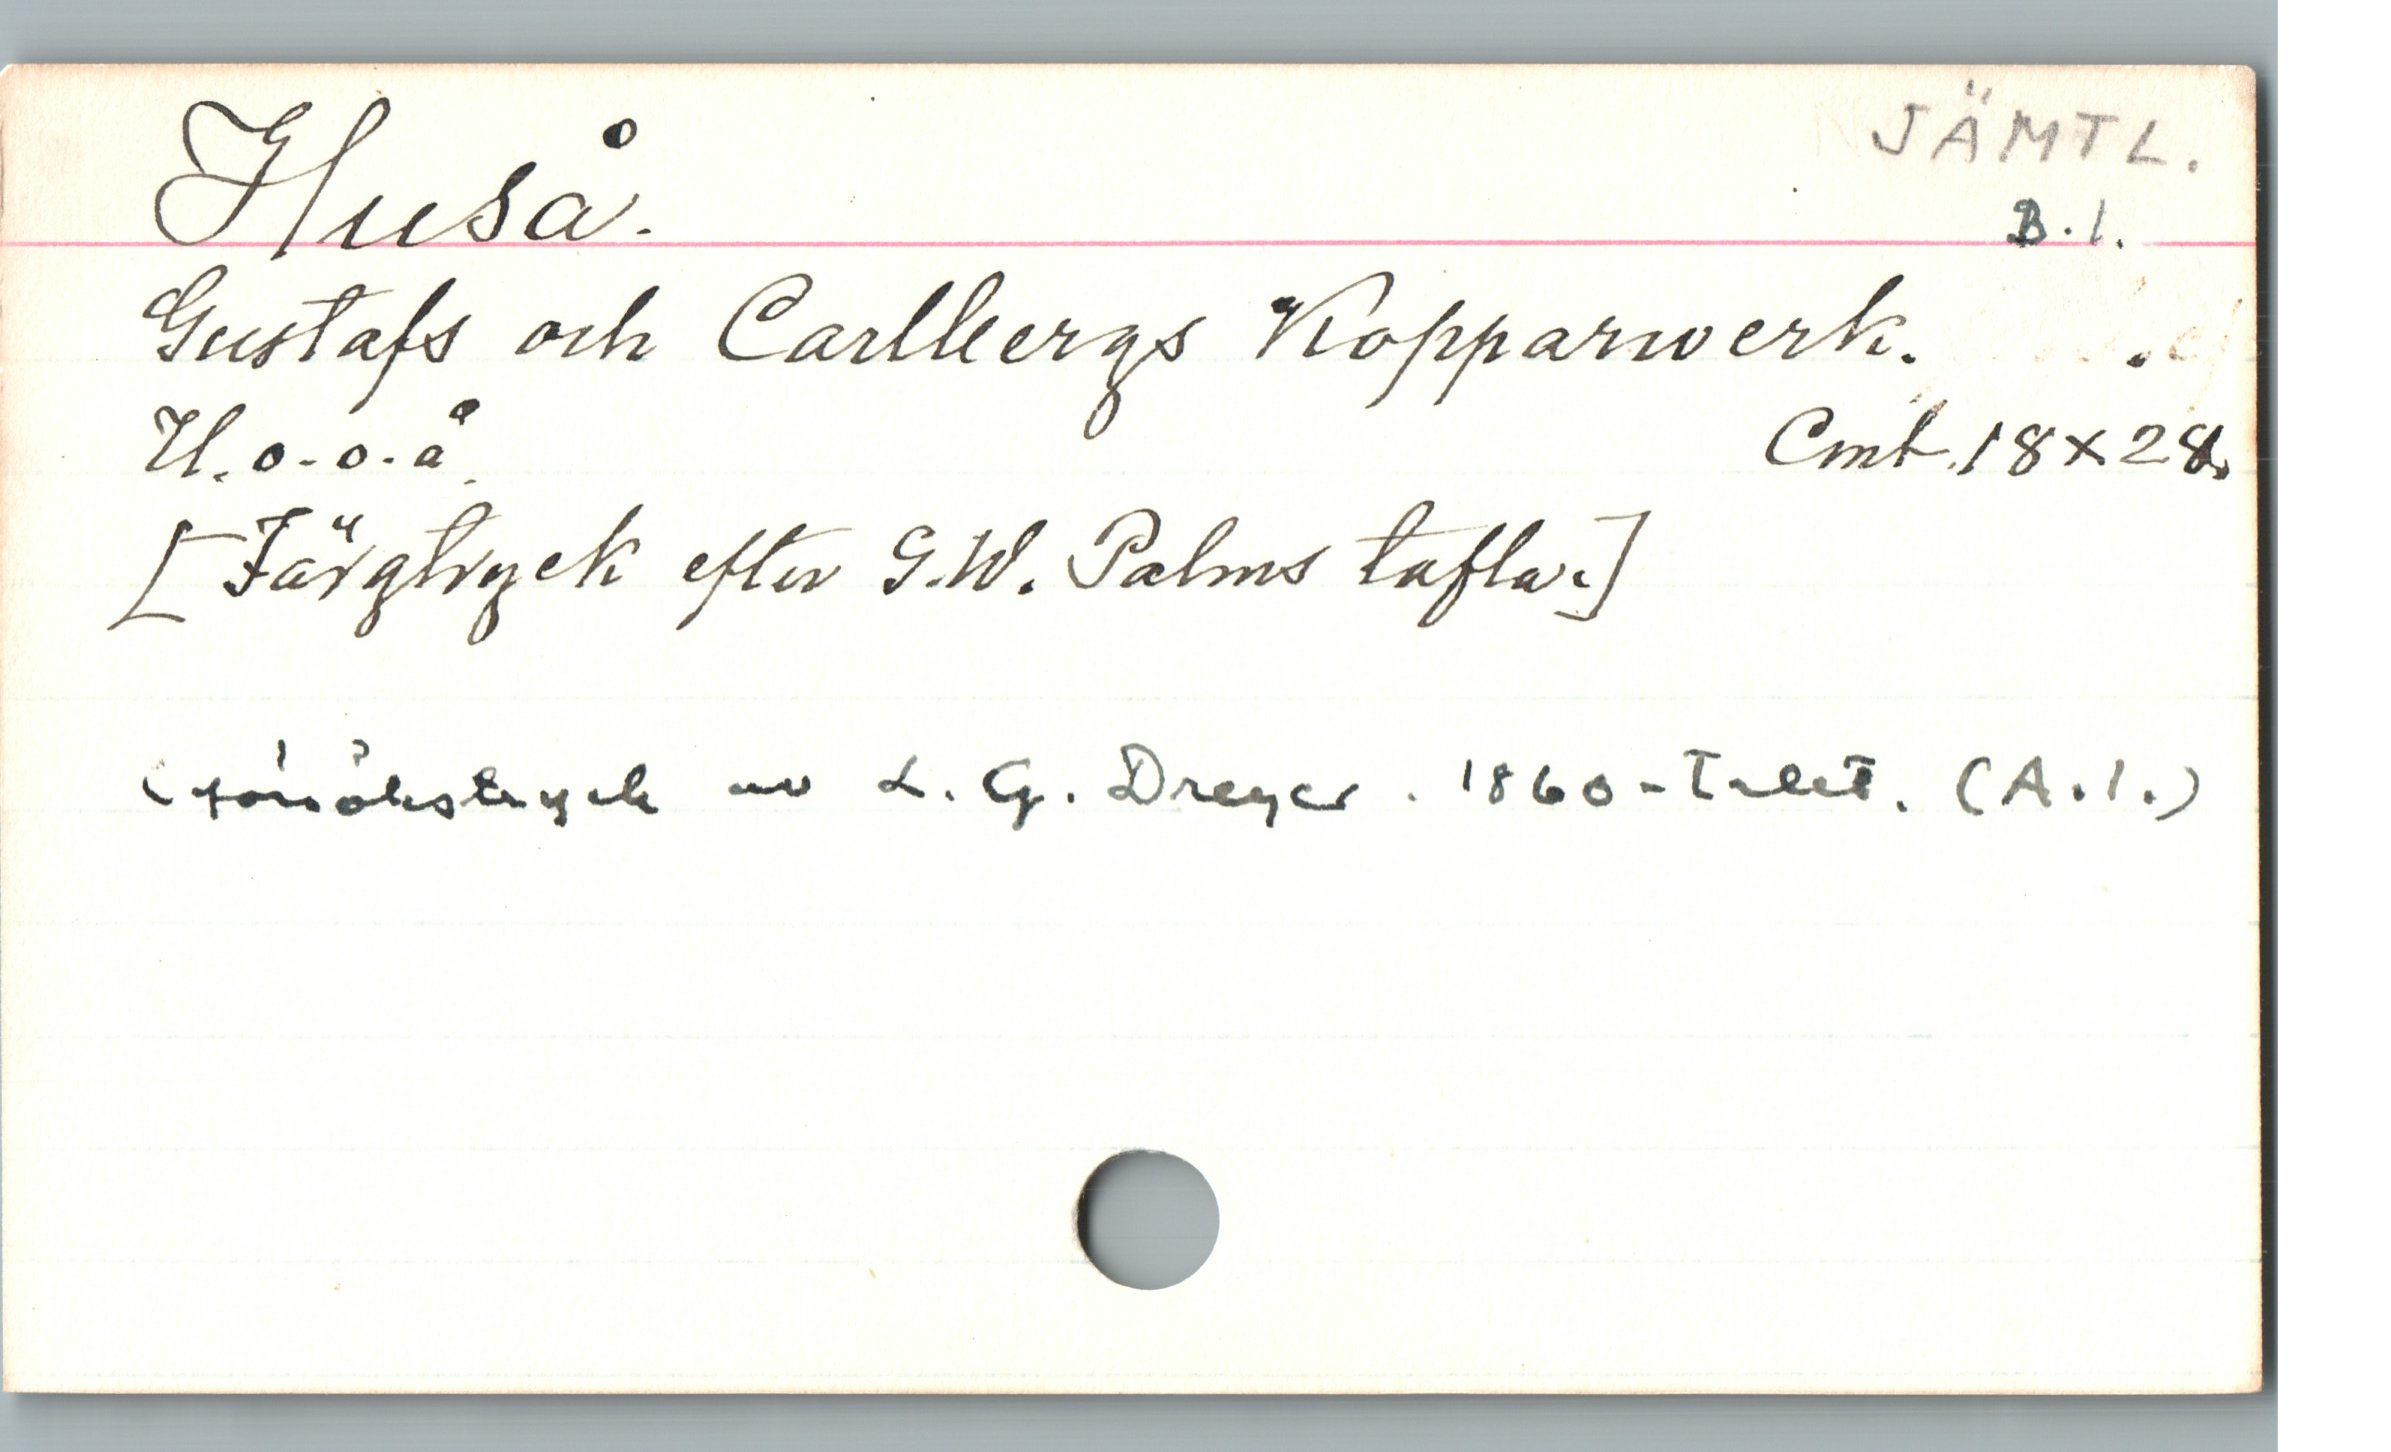 Huså.
JÄMTL.
B.1.
Gustafs och Carlbergs Kopparwerk.
H.o.o.å.
Cmt. 18 x 28.
[Färgtryck efter G.W. Palms tafla.]
(försökstryck av L.G. Dreyer. 1860-talet. (A.1.)